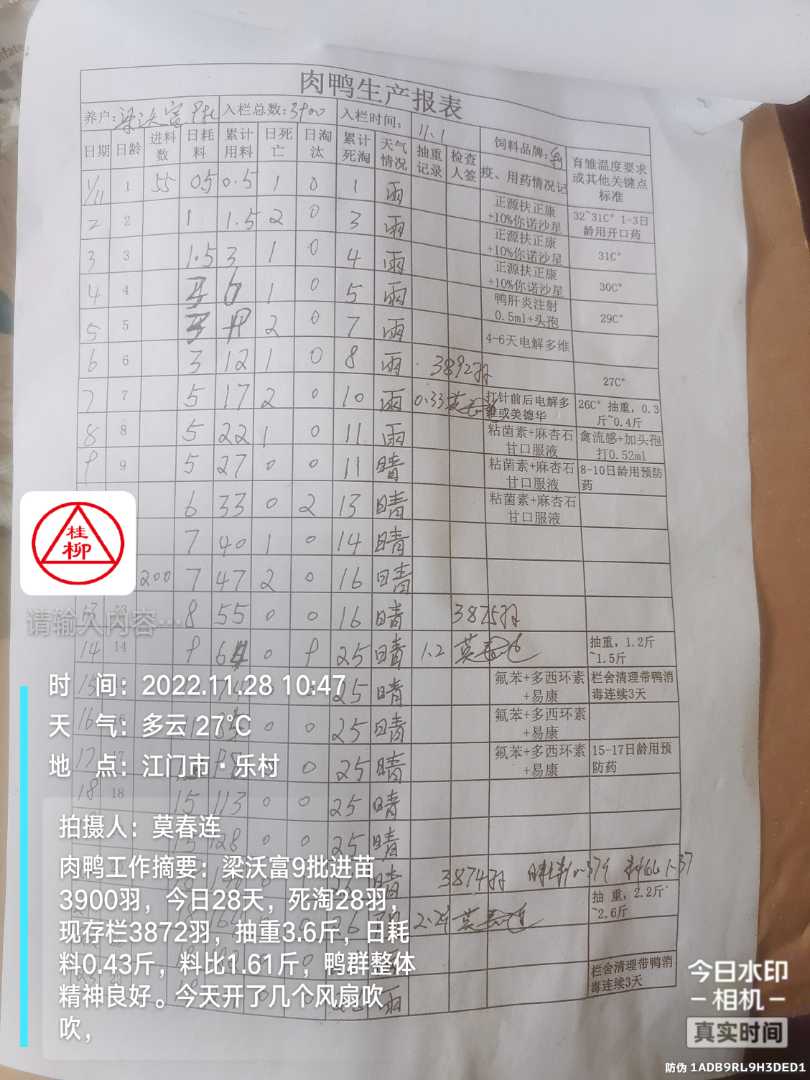 肉鸭生产报表
养户: 梁沃富9批 入栏总数: 3900 入栏时间: 11.1 饲料品牌:
日期 日龄 进料数 日耗料 累计用料 日死亡 日淘汰 累计死淘 天气情况 抽重记录 检查人签 疫、用药情况记 育雏温度要求或其他关键点标准
1/11 1 55 0.5 0.5 1 0 1 雨 正源扶正康+10%你诺沙星
2 2 1 1.5 2 0 3 雨 正源扶正康+10%你诺沙星 32~31C° 1-3日龄用开口药
3 3 1.5 3 1 0 4 雨 正源扶正康+10%你诺沙星 31C°
4 4 1 0 5 雨 鸭肝炎注射0.5ml+头孢 30C°
5 5 2 0 7 雨 4-6天电解多维 29C°
6 6 3 12 1 0 8 雨 3892羽 27C°
7 7 5 17 2 0 10 雨 0.33 打针前后电解多维或美德华 26C° 抽重，0.3斤~0.4斤
8 8 5 22 1 0 11 雨 粘菌素+麻杏石甘口服液 禽流感+加头孢打0.52ml
9 9 5 27 0 0 11 晴 粘菌素+麻杏石甘口服液 8-10日龄用预防药
6 33 0 2 13 晴 粘菌素+麻杏石甘口服液
7 40 1 0 14 晴
200 7 47 2 0 16 晴
13 8 55 0 0 16 晴 3875羽
14 14 9 64 0 9 25 晴 1.2 莫春连 抽重，1.2斤~1.5斤
15 25 晴 氟苯+多西环素+易康 栏舍清理带鸭消毒连续3天
16 0 25 晴 氟苯+多西环素+易康
17 0 25 晴 氟苯+多西环素+易康 15-17日龄用预防药
18 18 15 113 0 0 25 晴
15 128 0 0 25 晴
晴 3874羽
莫春连 抽重，2.2斤~2.6斤
栏舍清理带鸭消毒连续3天
雨
桂柳
请输入内容…
时 间：2022.11.28 10:47
天 气：多云 27℃
地 点：江门市·乐村
拍摄人：莫春连
肉鸭工作摘要：梁沃富9批进苗
3900羽，今日28天，死淘28羽，
现存栏3872羽，抽重3.6斤，日耗
料0.43斤，料比1.61斤，鸭群整体
精神良好。今天开了几个风扇吹
吹，
今日水印
相机
真实时间
防伪 1ADB9RL9H3DED1